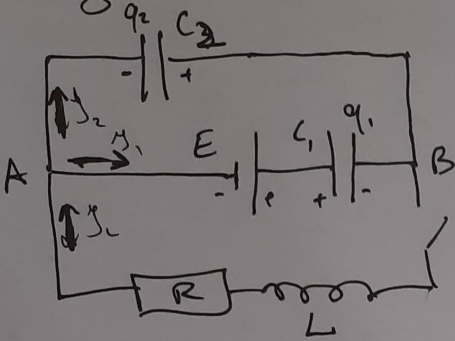 q₂ C₂
- +
J₂
J₁ E C₁ q₁
A B
- + + -
J_L
R
L